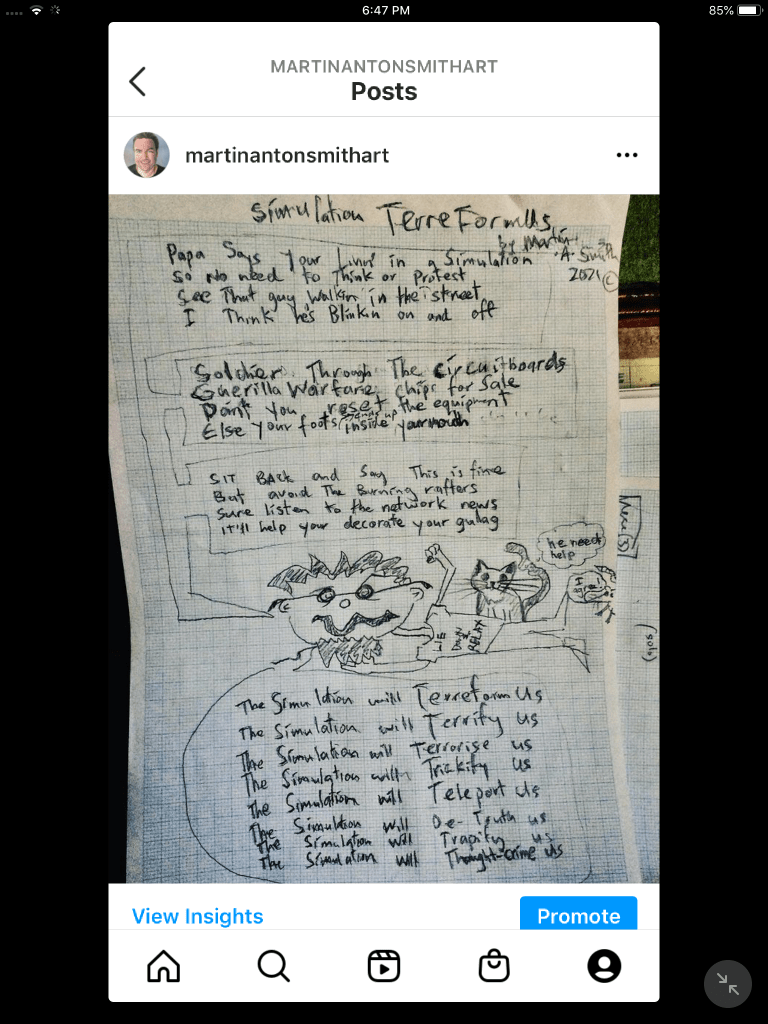 6:47 PM
85%
MARTINANTONSMITHART
Posts
martinantonsmithart
Simulation TerreFormUs
by Martin A. Smith
2021 ©
Papa Says Your Livin' in a Simulation
So No need to Think or Protest
See That guy Walkin' in the street
I Think he's Blinkin on and off
Soldier Through The circuitboards
Guerilla Warfare chips for Sale
Don't You reset the equipment
Else your foots inside your mouth
SIT BACK and Say This is fine
But avoid The Burning rafters
Sure listen to the network news
it'll help your decorate your gulag
he needs help
I agree!
LIE DOWN & RELAX
(solo)
The Simulation will TerreformUs
The Simulation will Terrify us
The Simulation will Terrorise us
The Simulation will Trickify us
The Simulation will Teleport Us
The Simulation will De-Truth us
The Simulation will Trapify us
The Simulation will Thought-crime Us
View Insights
Promote